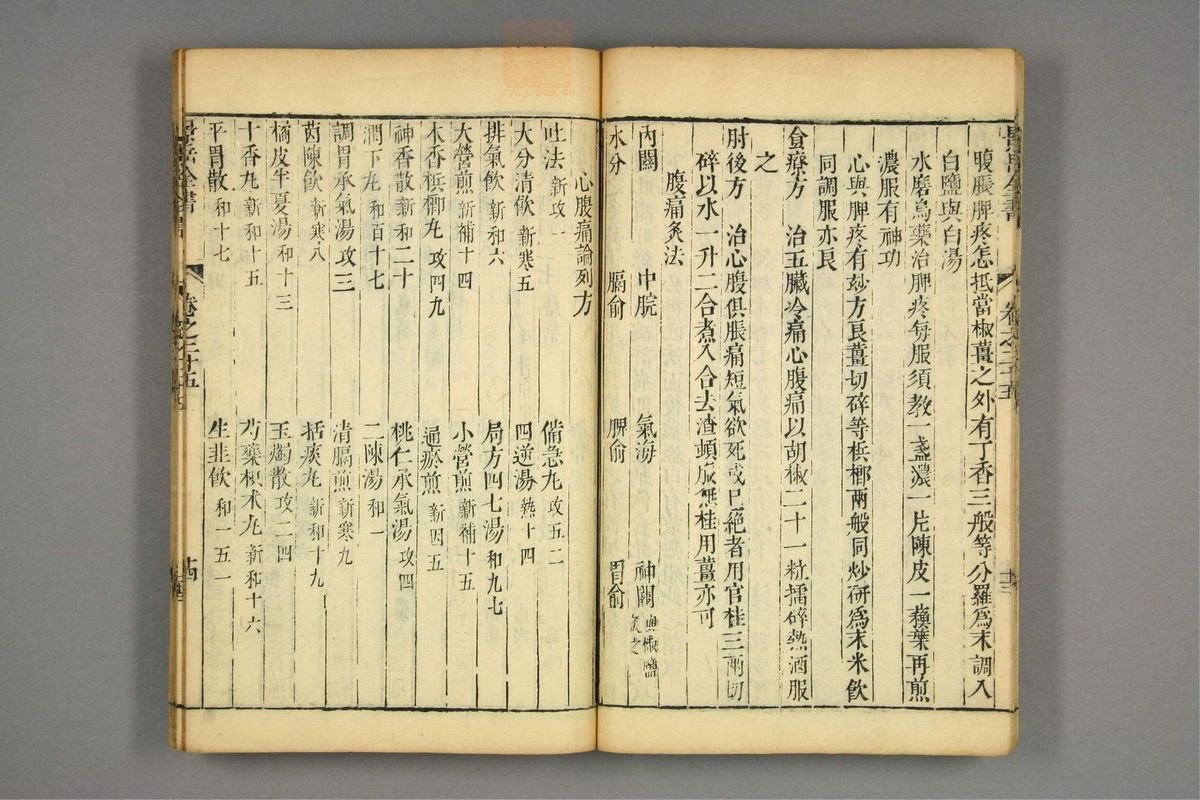 腹脹脾疼怎抵當椒薑之外有丁香三般等分羅為末調入
白鹽與白湯
水磨烏藥治脾疼每服須教一盞濃一片陳皮一蘋葉再煎
濃服有神功
心與脾疼有玅方良薑切碎等梹榔兩般同炒研為末米飲
同調服亦良
食療方 治五臟冷痛心腹痛以胡椒二十一粒擂碎熱酒服
之
肘後方 治心腹俱脹痛短氣欲死或已絕者用官桂三兩切
碎以水一升二合煮入合去渣頓服無桂用薑亦可
腹痛灸法
內關 中脘 氣海 神闕
水分 膈俞 脾俞 胃俞
心腹痛論列方
吐法 新攻一 備急丸 攻五二
大分清飲 新寒五 四逆湯 熱十四
排氣飲 新和六 局方四七湯 和九七
大營煎 新補十四 小營煎 新補十五
木香梹榔丸 攻四九 通瘀煎 新四五
神香散 新和二十 桃仁承氣湯 攻四
潤下丸 和百十七 二陳湯 和一
調胃承氣湯 攻三 清膈煎 新寒九
茵陳飲 新寒八 括痰丸 新和十九
橘皮半夏湯 和十三 玉燭散 攻二四
十香丸 新和十五 芍藥枳朮丸 新和十六
平胃散 和十七 生韭飲 和一五一
景岳全書 卷之三十五 十四